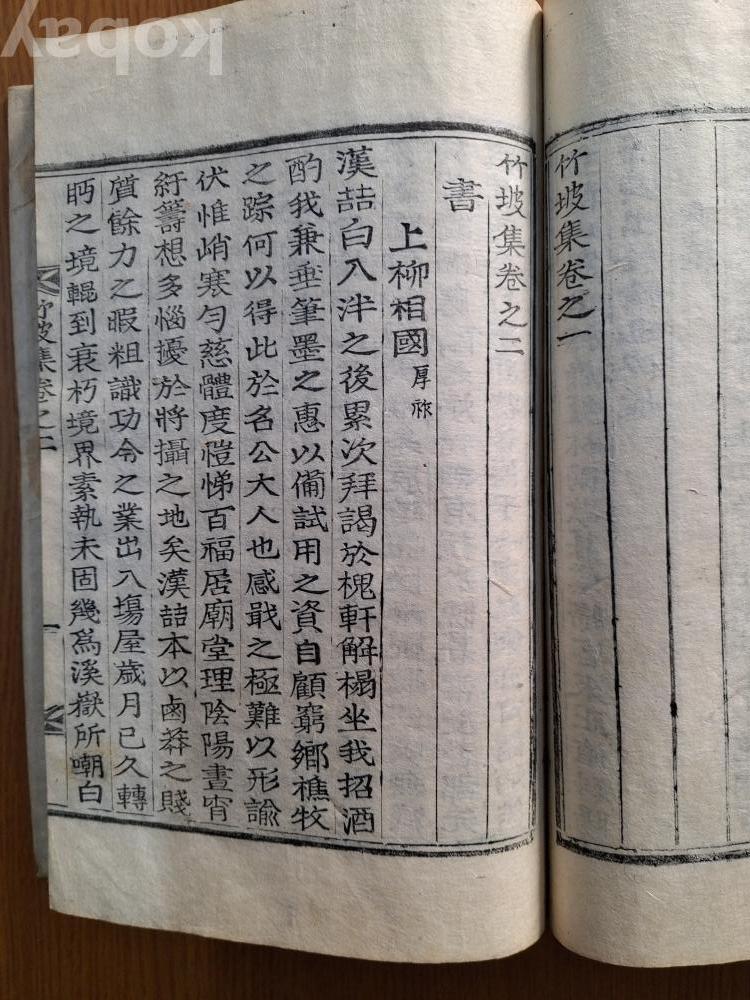 kobay
竹坡集卷之一
竹坡集卷之二
書
上柳相國 厚祚
漢喆白入泮之後累次拜謁於槐軒解榻坐我招酒
酌我兼垂筆墨之惠以備試用之資自顧窮鄉樵牧
之踪何以得此於名公大人也感戢之極難以形諭
伏惟峭寒勻慈體度愷悌百福居廟堂理陰陽晝宵
紆籌想多惱擾於將攝之地矣漢喆本以鹵莽之賤
質餘力之暇粗識功令之業出入塲屋歲月已久轉
眄之境輥到衰朽境界素執未固幾爲溪嶽所嘲白
竹坡集卷之二
一